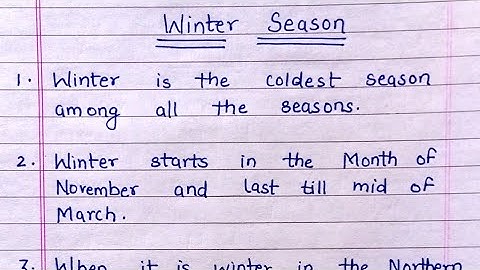 Winter Season
1. Winter is the coldest season
among all the seasons.
2. Winter starts in the Month of
November and last till mid of
March.
3. When it is winter in the Northern